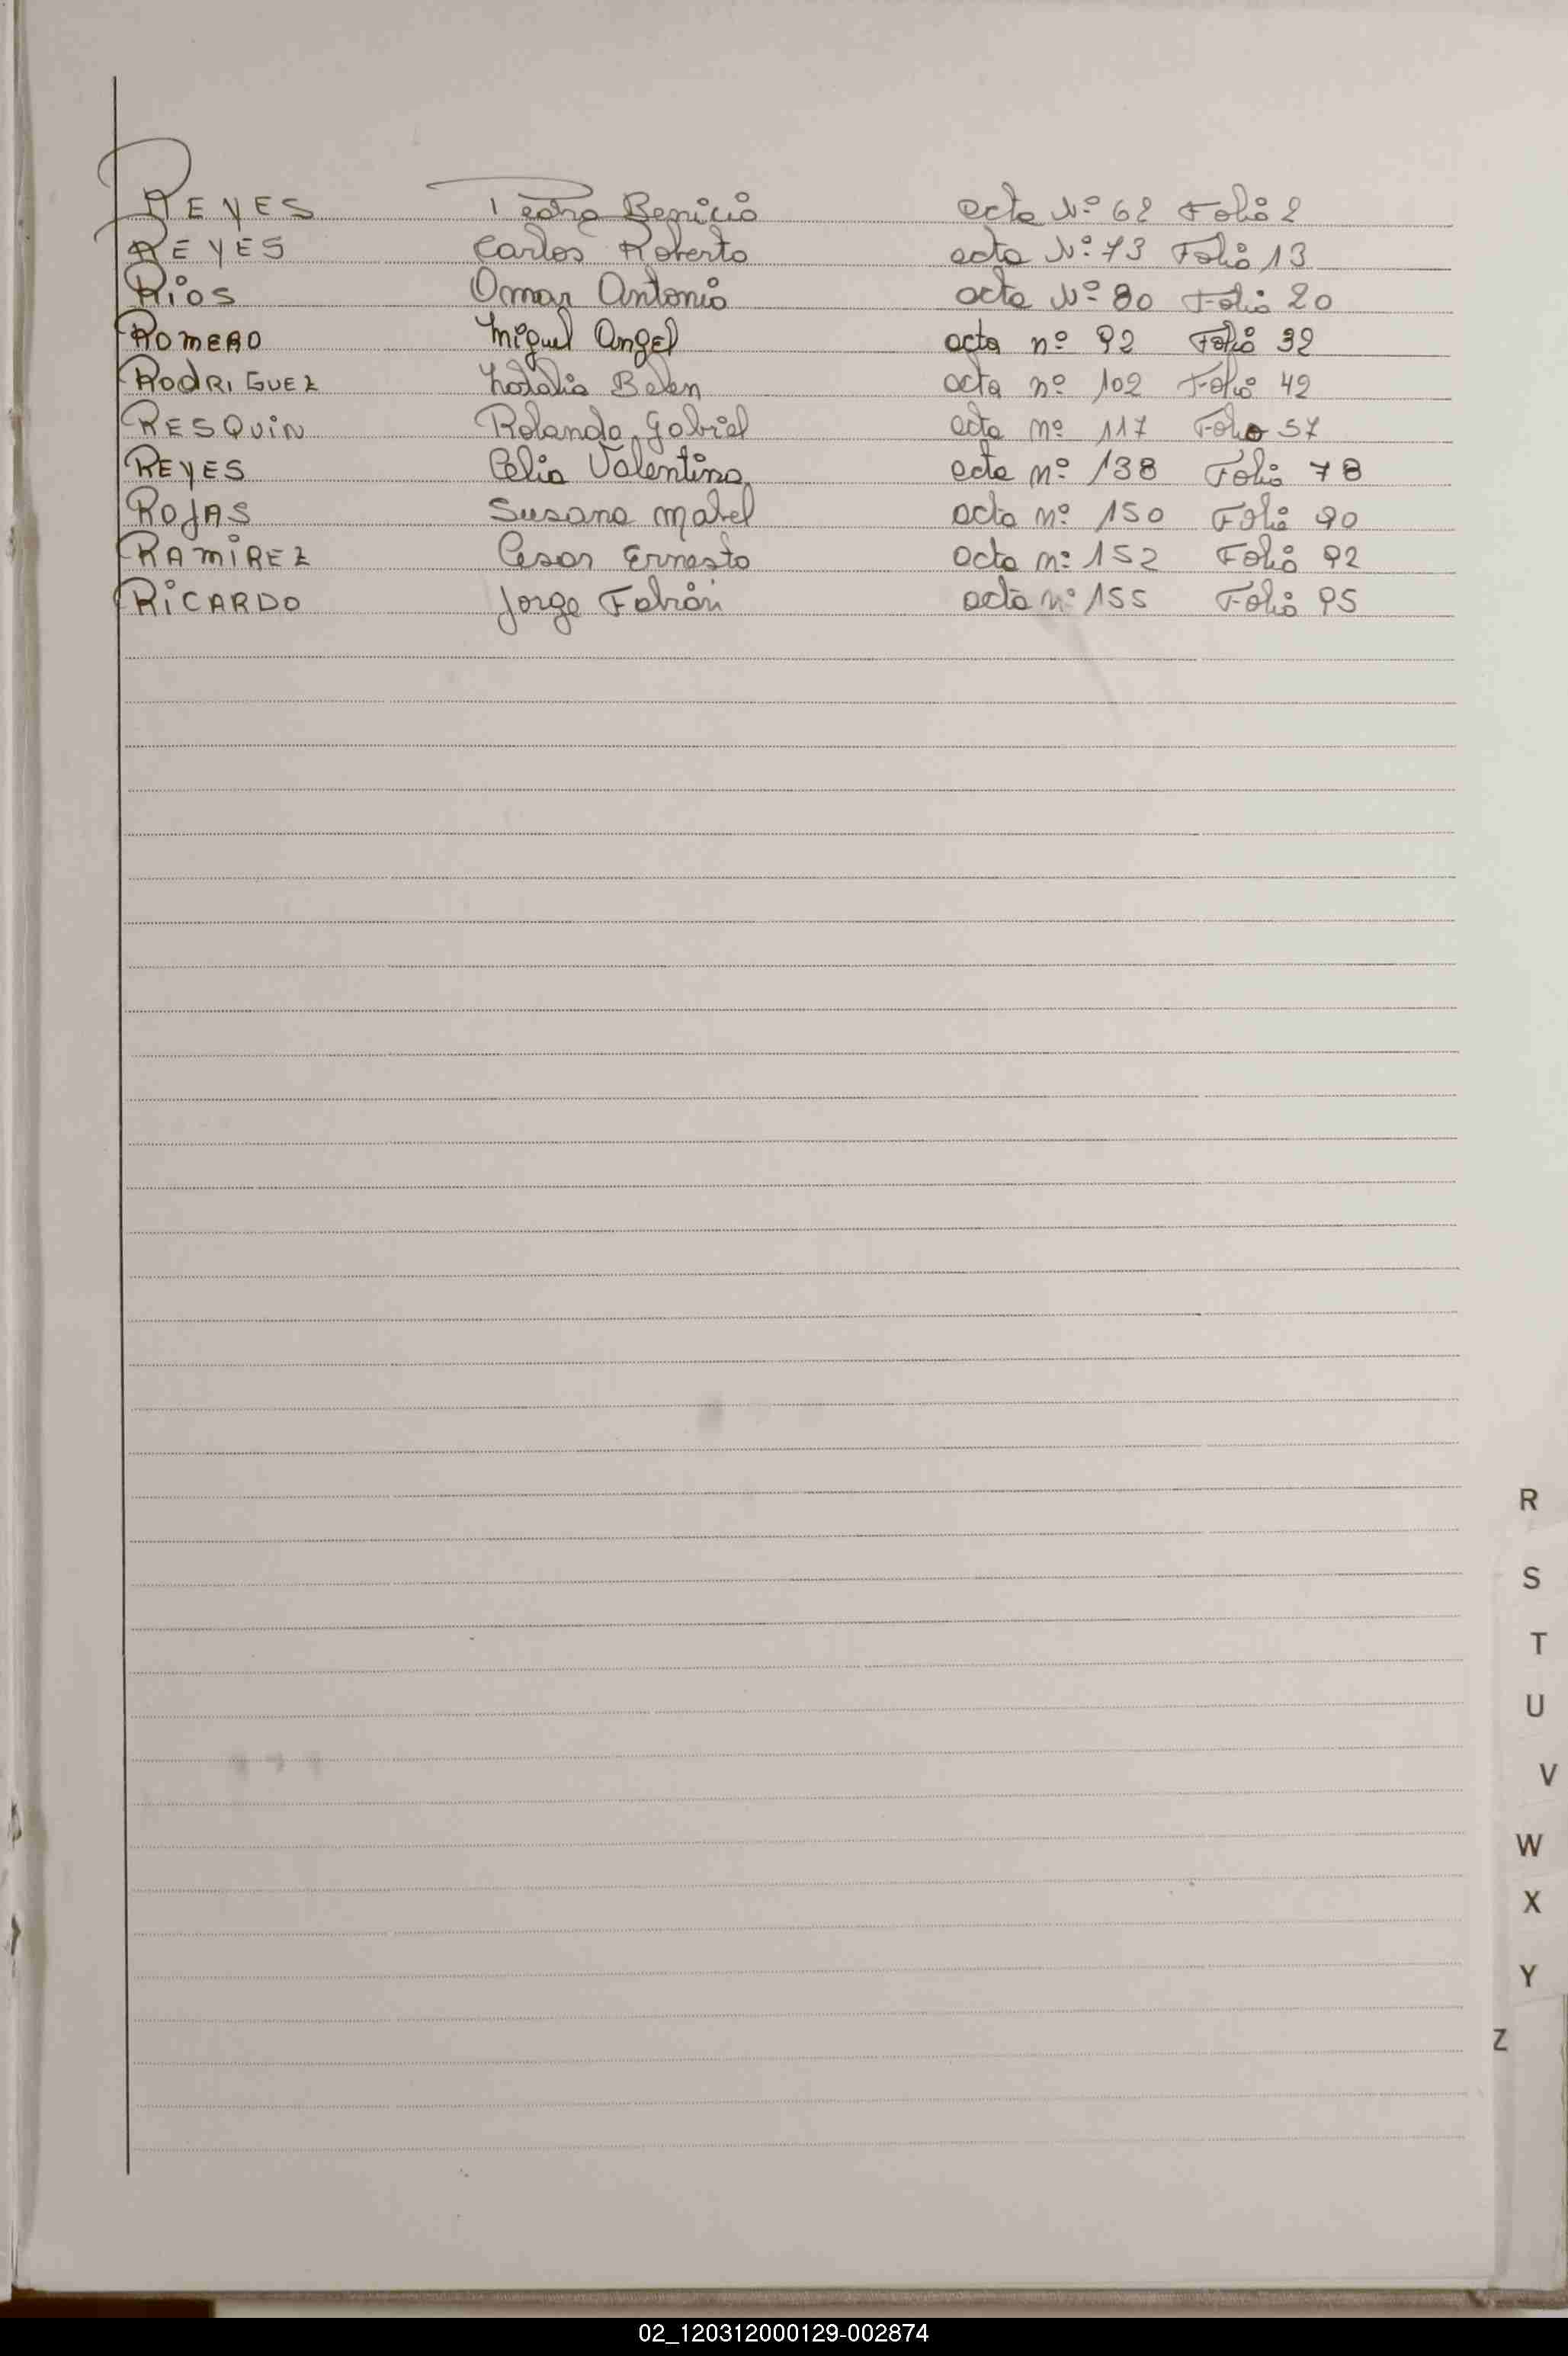 REYES Pedro Benicio acta Nº 62 Folio 2
REYES Carlos Roberto acta Nº 73 Folio 13
Rios Omar Antonio acta Nº 80 Folio 20
ROMERO Miguel Angel acta nº 92 Folio 32
RodRIGUEZ Natalia Belen acta nº 102 Folio 42
RESQUiN Rolando Gabriel acta nº 117 Folio 57
REYES Celia Valentina acta nº 138 Folio 78
ROJAS Susana Mabel acta nº 150 Folio 90
RAMiREZ Cesar Ernesto acta nº 152 Folio 92
RiCARDO Jorge Fabián acta nº 155 Folio 95
R
S
T
U
V
W
X
Y
Z
02_120312000129-002874